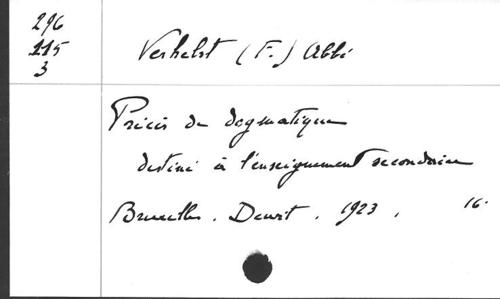 296
115
3
Verhelst (F.) Abbé
Précis de dogmatique
destiné à l'enseignement secondaire
Bruxelles. Dewit. 1923, 16.